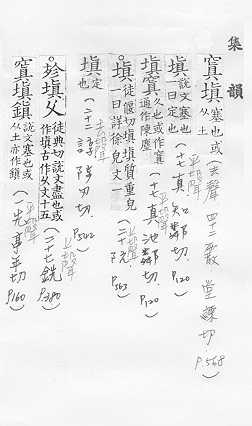 集韻
窴填 塞也或从土 (去聲 四十二霰 堂練切 P.568)
填 說文塞也一曰定也 (平聲 十七真 知鄰切 P.120)
填 久也或作寘通作陳塵 (平聲 十七真 池鄰切 P.120)
填 徒偃切填填質重皃一曰詳徐皃文一 (上聲 二十阮 P.363)
填 定也 (去聲 二十二稕 陟刃切 P.542)
㐱填 徒典切說文盡也或作填古作文十五 (上聲 二十七銑 P.380)
窴填鎮 說文塞也或从土亦作鎮 (平聲 一先 亭年切 P.160)